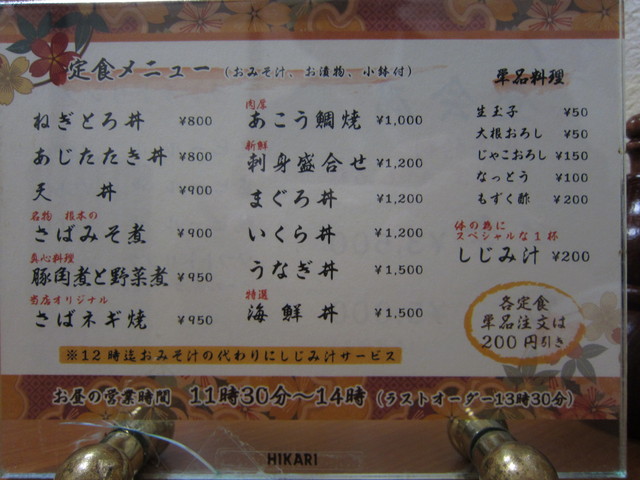 定食メニュー (おみそ汁、お漬物、小鉢付)
ねぎとろ丼 ¥800
あじたたき丼 ¥800
天丼 ¥900
名物 根本の
さばみそ煮 ¥900
真心料理
豚角煮と野菜煮 ¥950
当店オリジナル
さばネギ焼 ¥950
肉厚
あこう鯛焼 ¥1,000
新鮮
刺身盛合せ ¥1,200
まぐろ丼 ¥1,200
いくら丼 ¥1,200
うなぎ丼 ¥1,500
特選
海鮮丼 ¥1,500
単品料理
生玉子 ¥50
大根おろし ¥50
じゃこおろし ¥150
なっとう ¥100
もずく酢 ¥200
体の為に
スペシャルな1杯
しじみ汁 ¥200
各定食
単品注文は
200円引き
※12時迄おみそ汁の代わりにしじみ汁サービス
お昼の営業時間 11時30分～14時 (ラストオーダー13時30分)
HIKARI